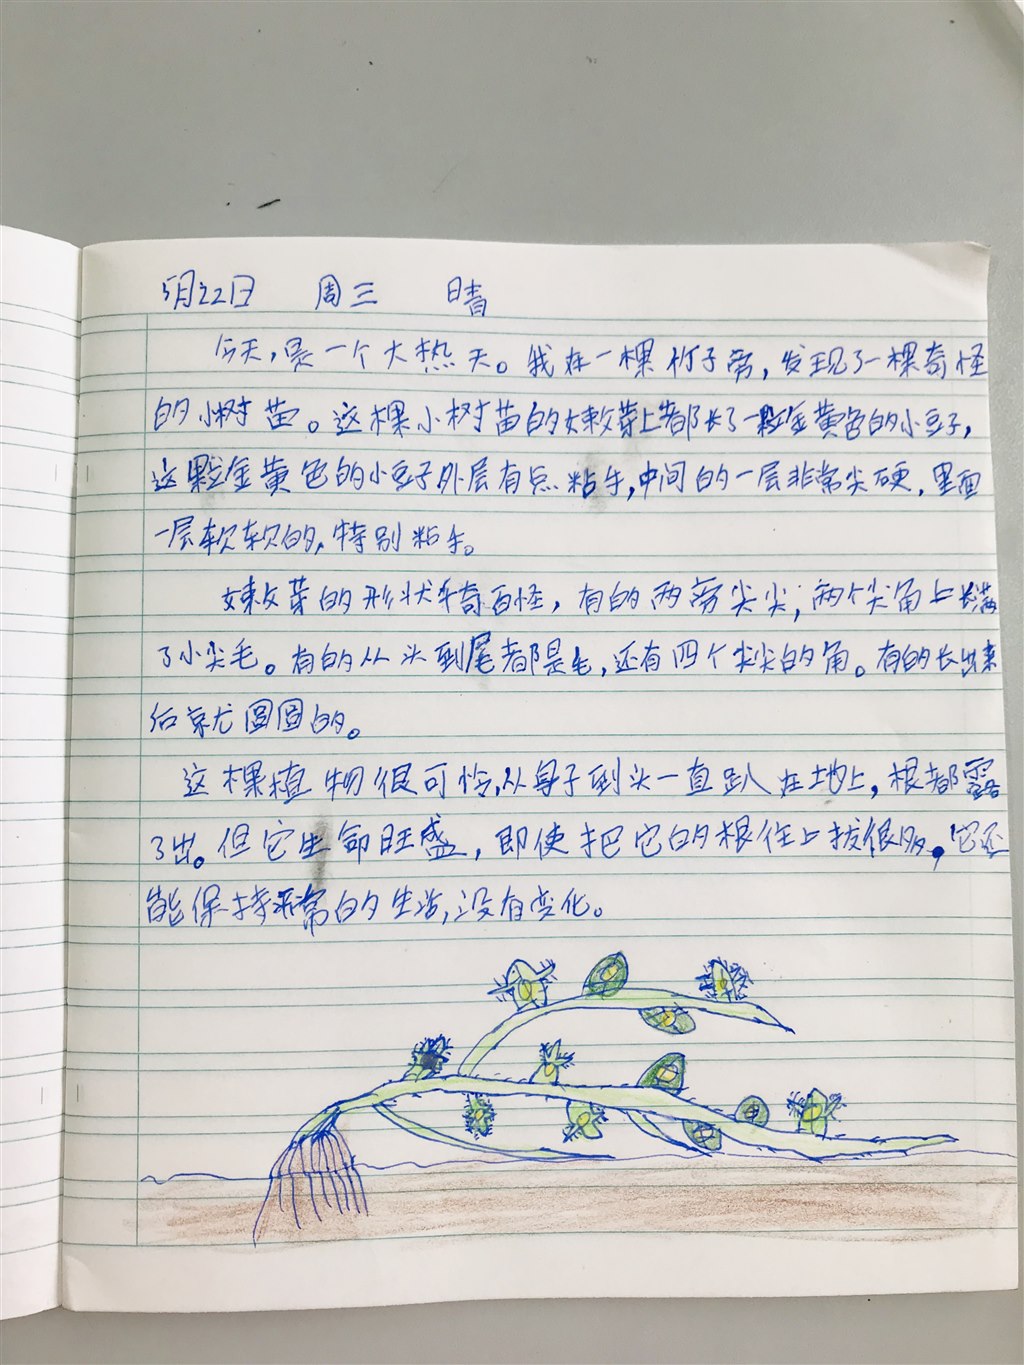 5月22日 周三 晴
今天,是一个大热天。我在一棵竹子旁,发现了一棵奇怪
的小树苗。这棵小树苗的嫩芽上都长了一颗金黄色的小豆子,
这颗金黄色的小豆子外层有点粘手,中间的一层非常尖硬,里面
一层软软的,特别粘手。
嫩芽的形状千奇百怪,有的两旁尖尖;两个尖角上长满
了小尖毛。有的从头到尾都是毛,还有四个尖尖的角。有的长出来
后就圆圆的。
这棵植物很可怜,从身子到头一直趴在地上,根都露
了出。但它生命旺盛,即使把它的根往上拔很多,它还
能保持平常的生活,没有变化。